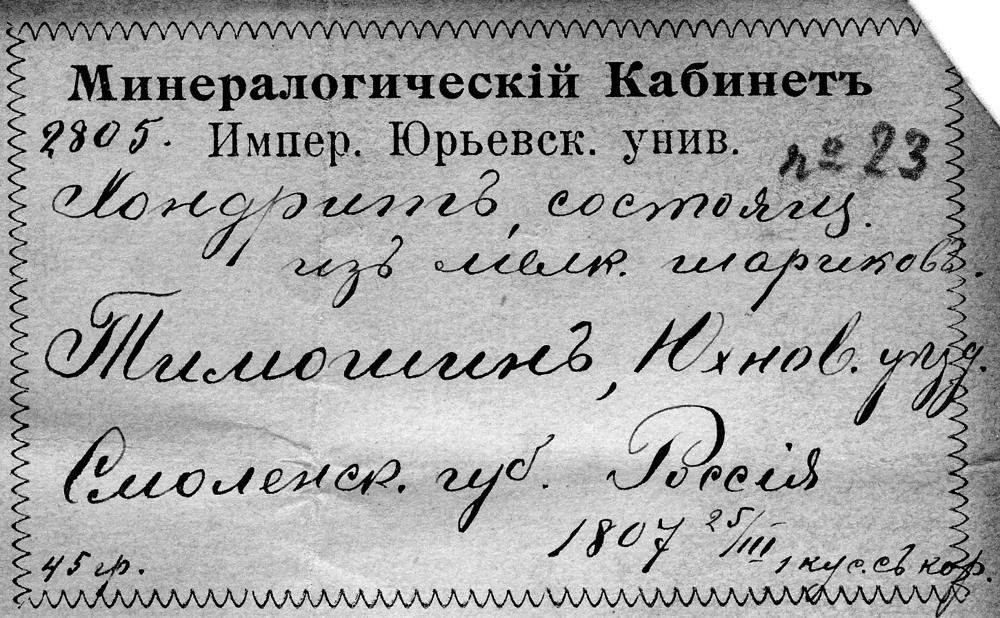 Минералогическій Кабинетъ
2805. Импер. Юрьевск. унив. № 23
Хондритъ, состоящ.
изъ мелк. шариковъ.
Тимошинъ, Юхнов. уѣзд.
Смоленск. губ. Россія
1807 25/III
45 гр. 1 кус. съ кор.